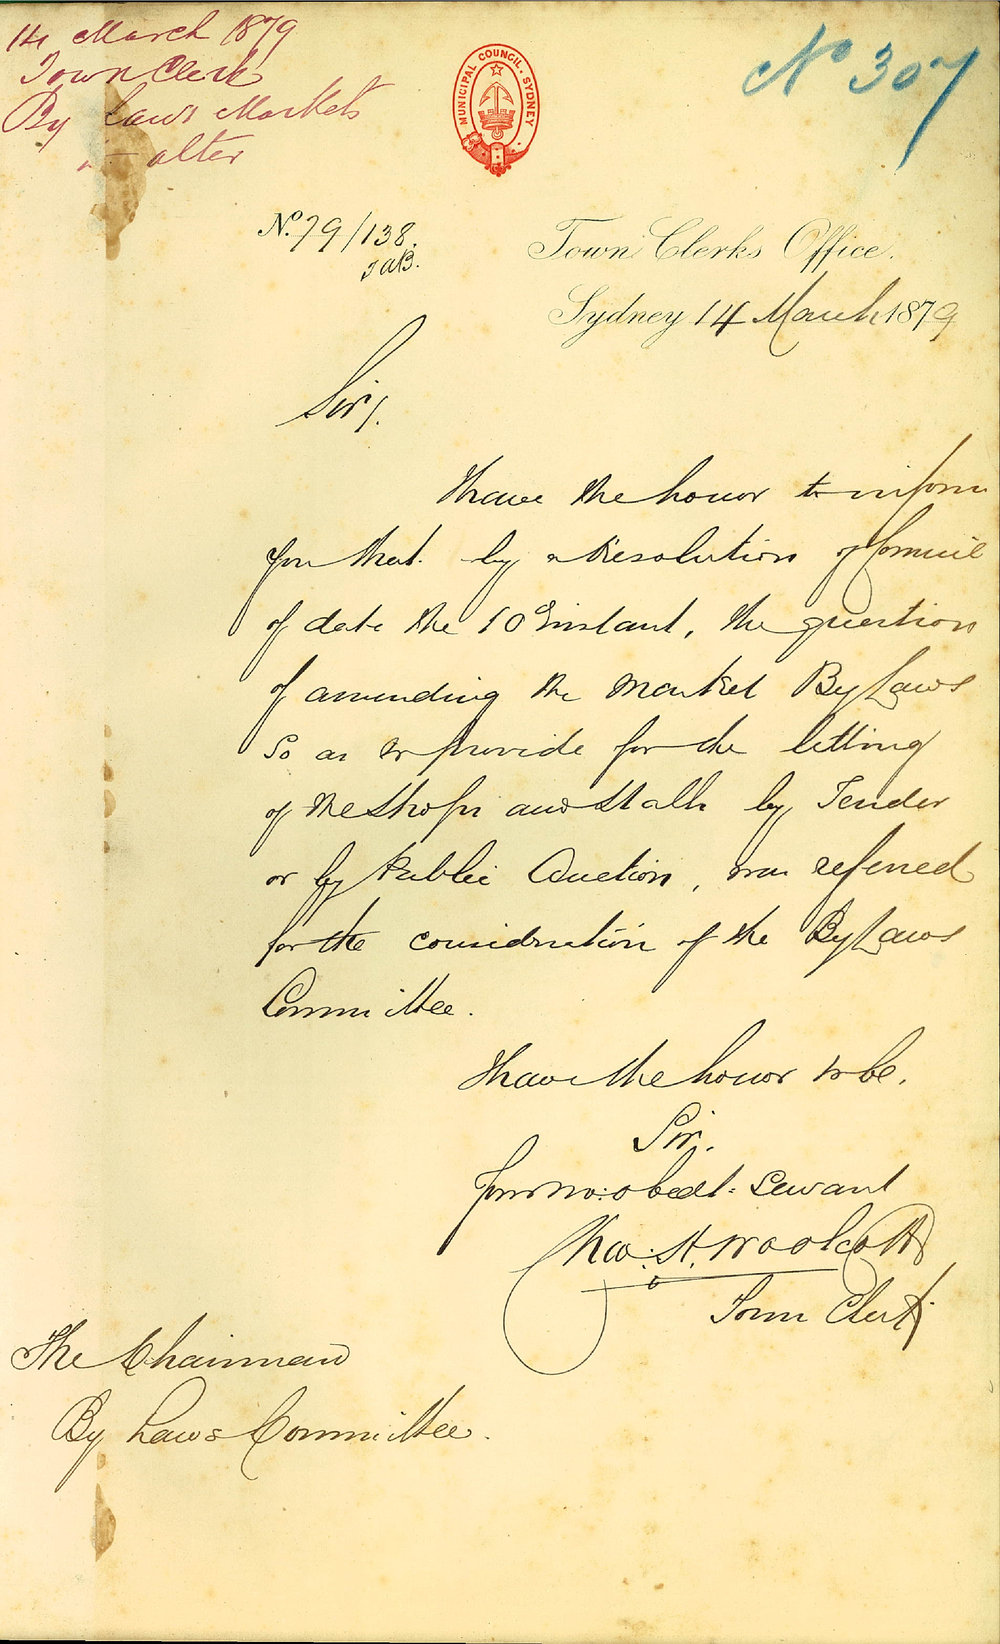 14 March 1879
Town Clerk
By Laws Markets
to alter
MUNICIPAL COUNCIL. SYDNEY
No 307
No. 79/138.
Town Clerks Office.
Sydney 14 March 1879
Sir,
I have the honor to inform
you that by a Resolution of Council
of date the 10th instant, the question
of amending the Market By Laws
so as to provide for the letting
of the Shops and Stalls by Tender
or by Public Auction, was referred
for the consideration of the By Laws
Committee.
I have the honor to be.
Sir.
Your mo: obedt: Servant
Chas. H. Woolcott
Town Clerk
The Chairman
By Laws Committee.